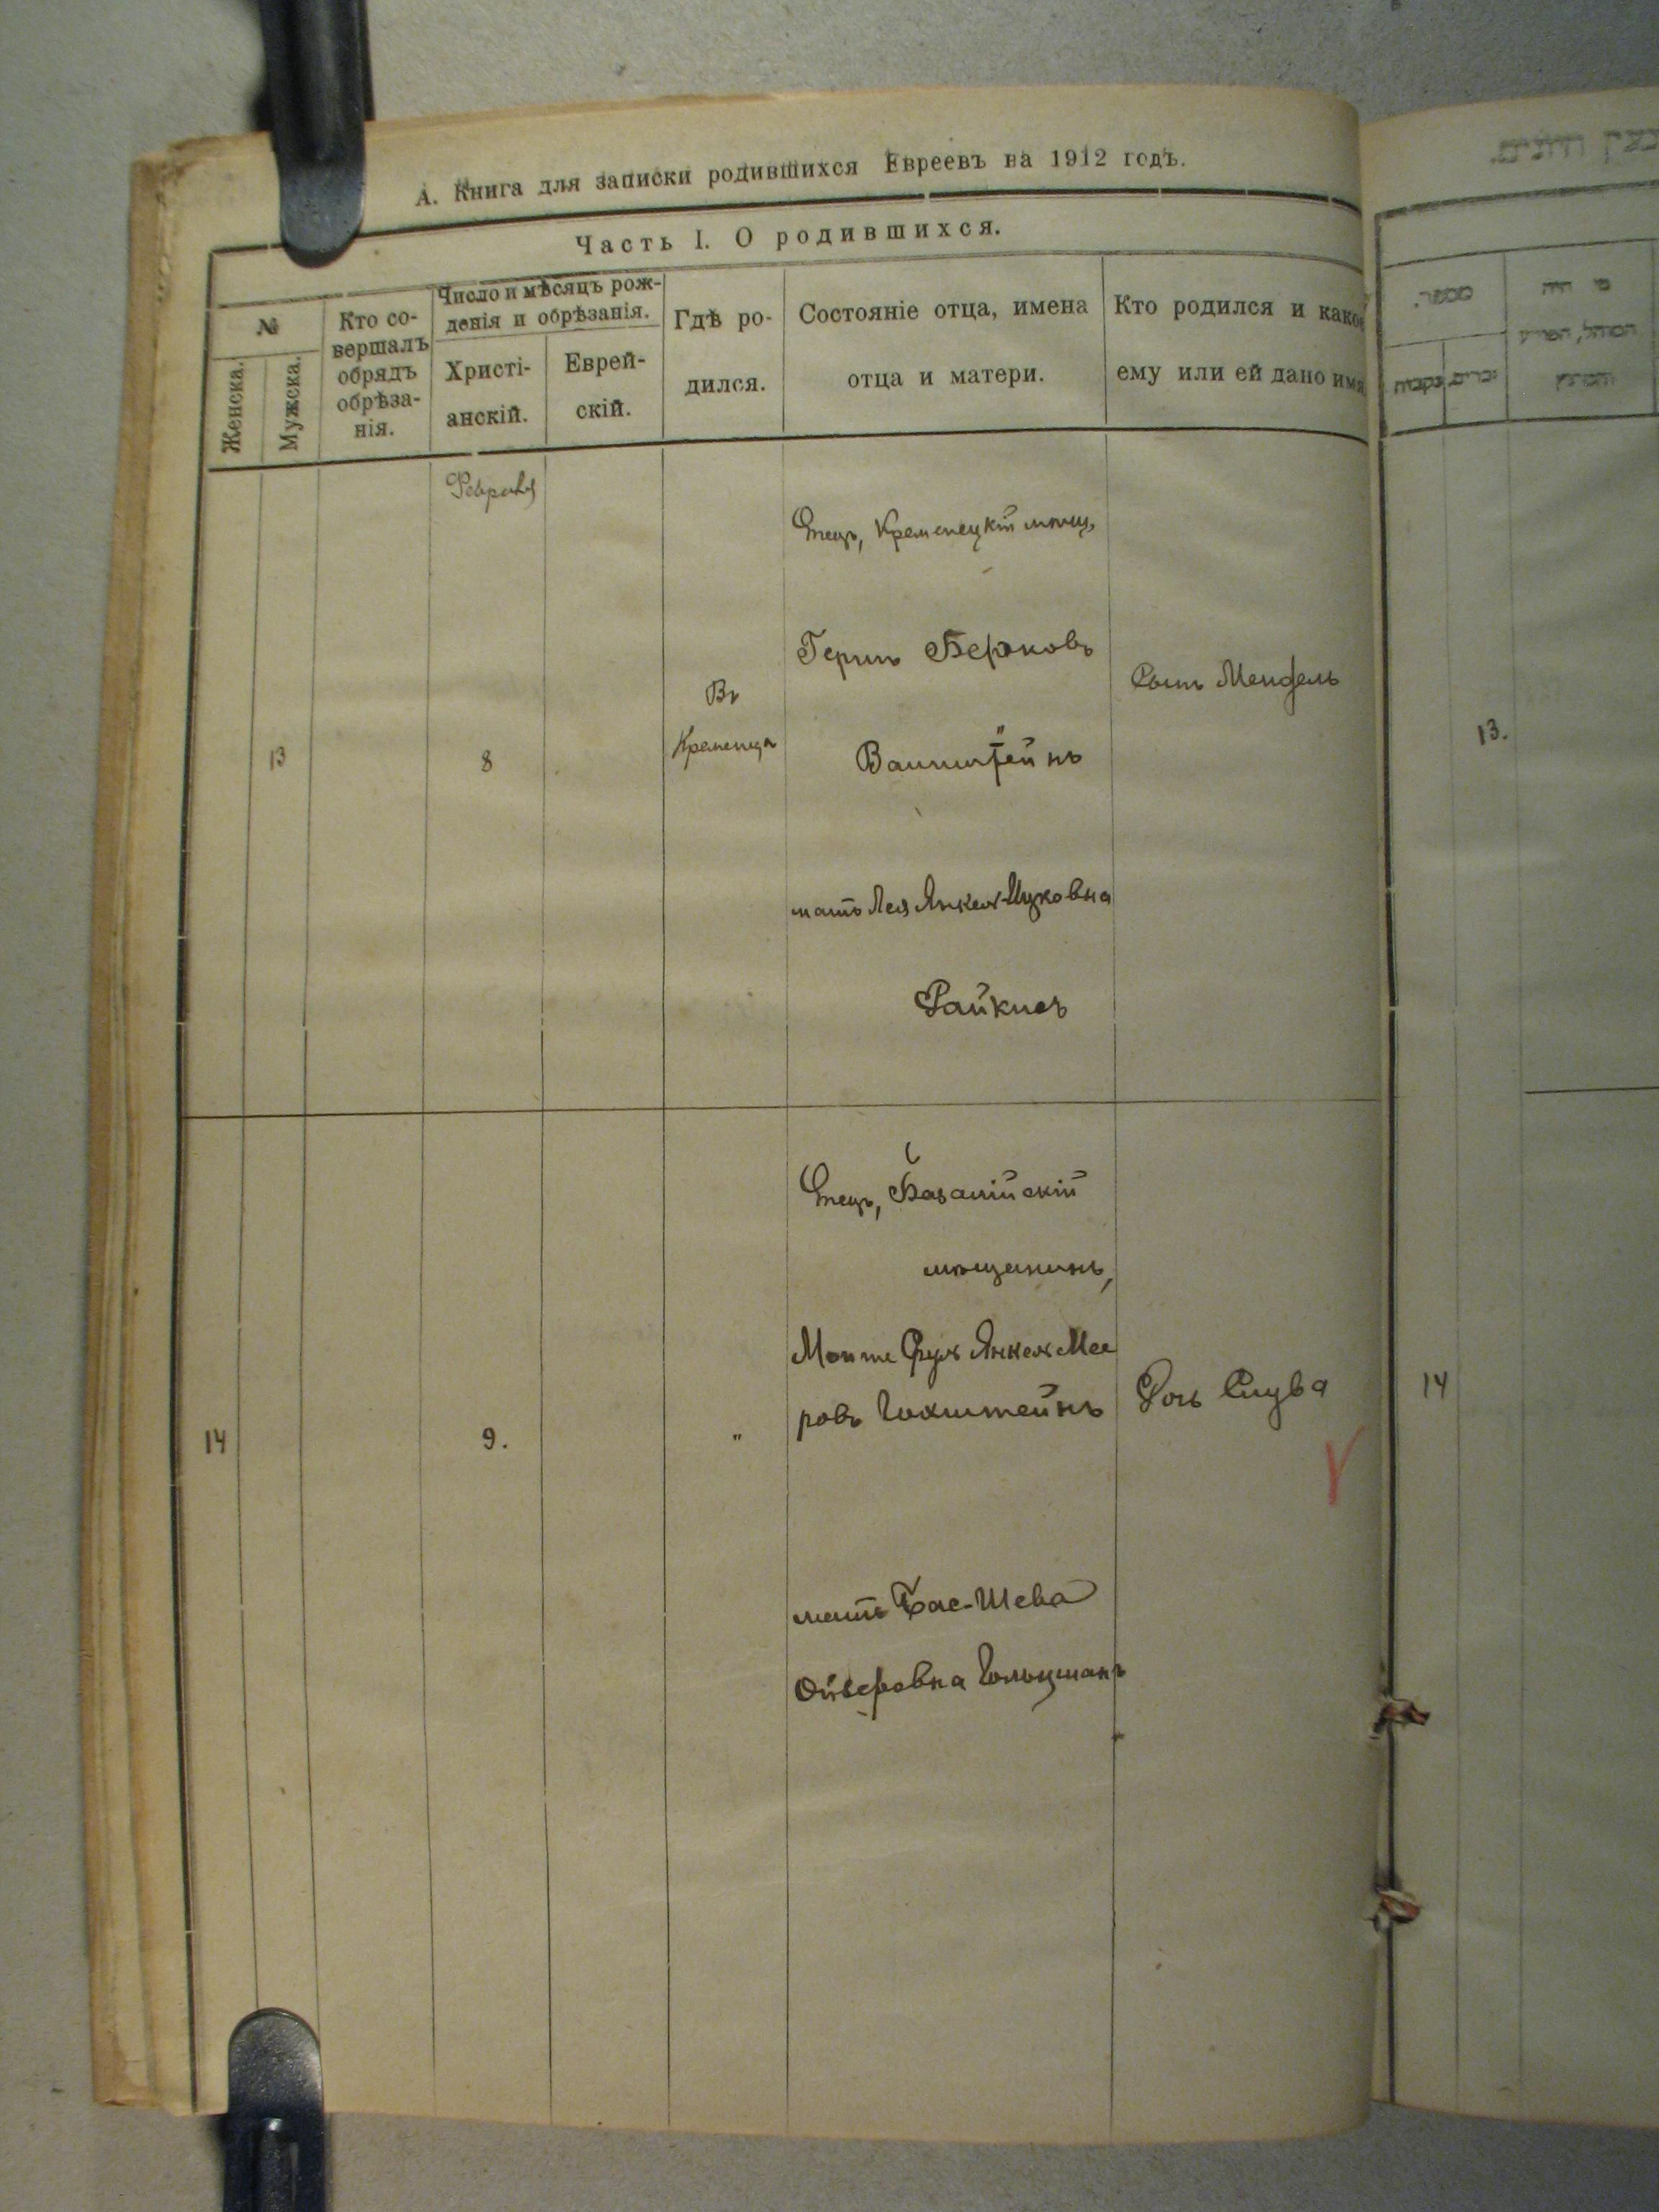 А. Книга для записки родившихся Евреевъ на 1912 годъ.
Часть I. О родившихся.
№
Женска.
Мужска.
Кто со-
вершалъ
обрядъ
обрѣза-
нія.
Число и мѣсяцъ рож-
денія и обрѣзанія.
Христі-
анскій.
Еврей-
скій.
Гдѣ ро-
дился.
Состояніе отца, имена
отца и матери.
Кто родился и какое
ему или ей дано имя
Февраля
13
8
Въ
Кременцѣ
Отецъ, Кременецкій мѣщ,
Гершъ Берковъ
Ванштейнъ
мать Лея Янкел-Ицковна
Райкисъ
Сынъ Мендель
13.
14
9.
"
Отецъ, Базалійскій
мѣщанинъ,
Мошъ Сруль Янкел Мее
ровъ Гохштейнъ
мать Бас-Шева
Ойзеровна Гольцманъ
Дочь Слува
14